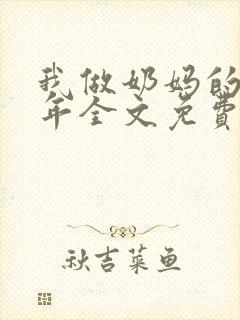 我做奶妈的
年全文免費
秋吉菜鱼